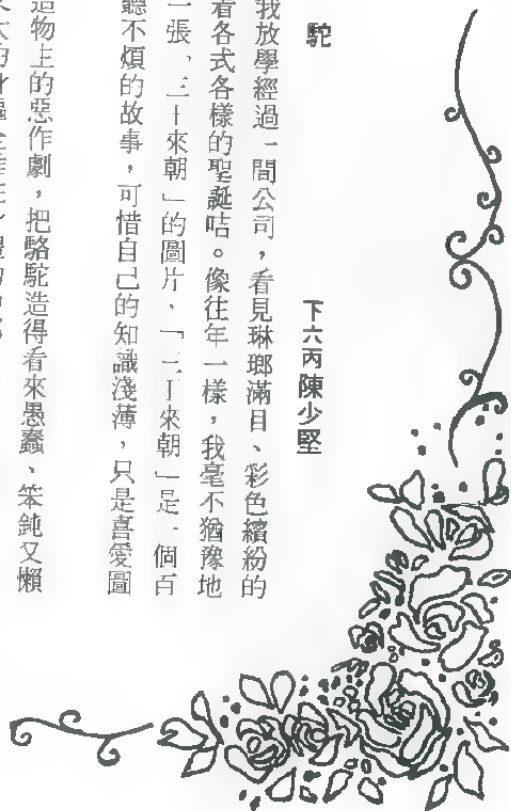 駝
下六丙陳少堅
我放學經過一間公司，看見琳瑯滿目、彩色繽紛的
着各式各樣的聖誕咭。像往年一樣，我毫不猶豫地
一張「三王來朝」的圖片，「三王來朝」是一個百
聽不煩的故事，可惜自己的知識淺薄，只是喜愛圖
造物主的惡作劇，把駱駝造得看來愚蠢、笨鈍又懶